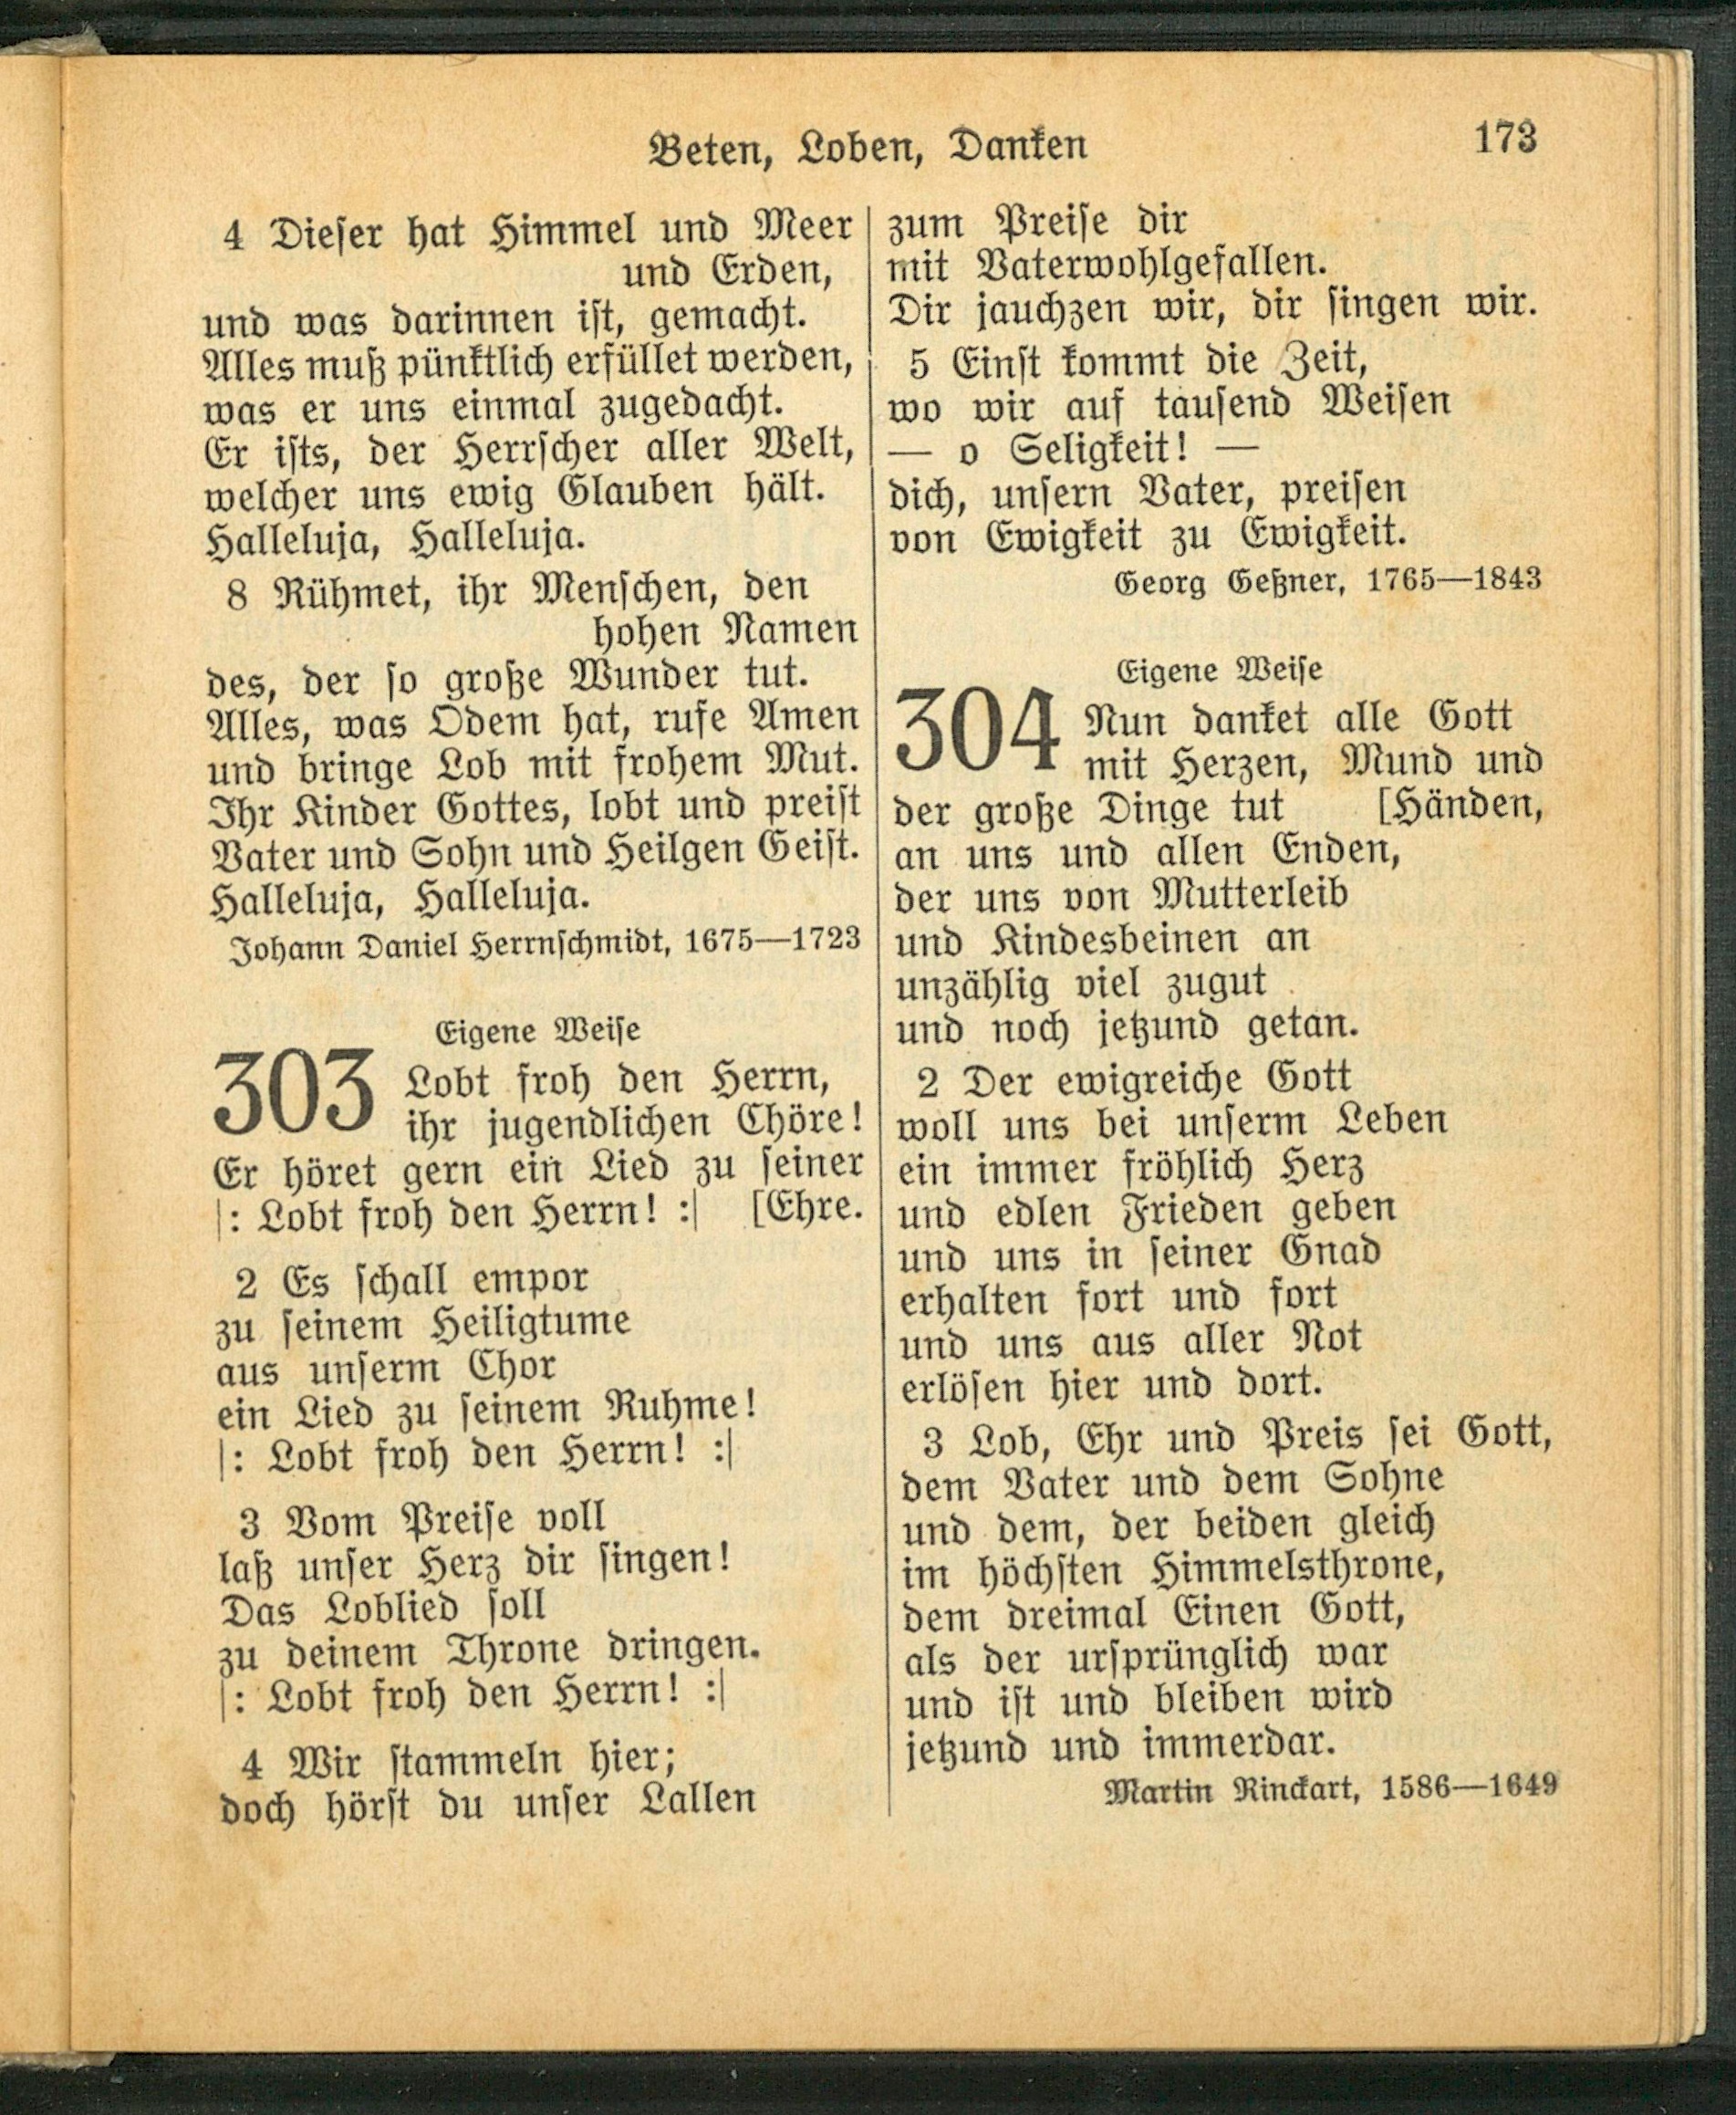 Beten, Loben, Danken
173
4 Dieser hat Himmel und Meer
und Erden,
und was darinnen ist, gemacht.
Alles muß pünktlich erfüllet werden,
was er uns einmal zugedacht.
Er ists, der Herrscher aller Welt,
welcher uns ewig Glauben hält.
Halleluja, Halleluja.
8 Rühmet, ihr Menschen, den
hohen Namen
des, der so große Wunder tut.
Alles, was Odem hat, rufe Amen
und bringe Lob mit frohem Mut.
Ihr Kinder Gottes, lobt und preist
Vater und Sohn und Heilgen Geist.
Halleluja, Halleluja.
Johann Daniel Herrnschmidt, 1675—1723
Eigene Weise
303 Lobt froh den Herrn,
ihr jugendlichen Chöre!
Er höret gern ein Lied zu seiner
|: Lobt froh den Herrn! :| [Ehre.
2 Es schall empor
zu seinem Heiligtume
aus unserm Chor
ein Lied zu seinem Ruhme!
|: Lobt froh den Herrn! :|
3 Vom Preise voll
laß unser Herz dir singen!
Das Loblied soll
zu deinem Throne dringen.
|: Lobt froh den Herrn! :|
4 Wir stammeln hier;
doch hörst du unser Lallen
zum Preise dir
mit Vaterwohlgefallen.
Dir jauchzen wir, dir singen wir.
5 Einst kommt die Zeit,
wo wir auf tausend Weisen
— o Seligkeit! —
dich, unsern Vater, preisen
von Ewigkeit zu Ewigkeit.
Georg Geßner, 1765—1843
Eigene Weise
304 Nun danket alle Gott
mit Herzen, Mund und
der große Dinge tut [Händen,
an uns und allen Enden,
der uns von Mutterleib
und Kindesbeinen an
unzählig viel zugut
und noch jetzund getan.
2 Der ewigreiche Gott
woll uns bei unserm Leben
ein immer fröhlich Herz
und edlen Frieden geben
und uns in seiner Gnad
erhalten fort und fort
und uns aus aller Not
erlösen hier und dort.
3 Lob, Ehr und Preis sei Gott,
dem Vater und dem Sohne
und dem, der beiden gleich
im höchsten Himmelsthrone,
dem dreimal Einen Gott,
als der ursprünglich war
und ist und bleiben wird
jetzund und immerdar.
Martin Rinckart, 1586—1649